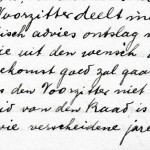 Voorzitter deelt m
isch advies ontslag n
ie uit den wensch
ekomst goed zal gaa
s den Voorzitter niet
id van den Raad is
ie verscheidene jare